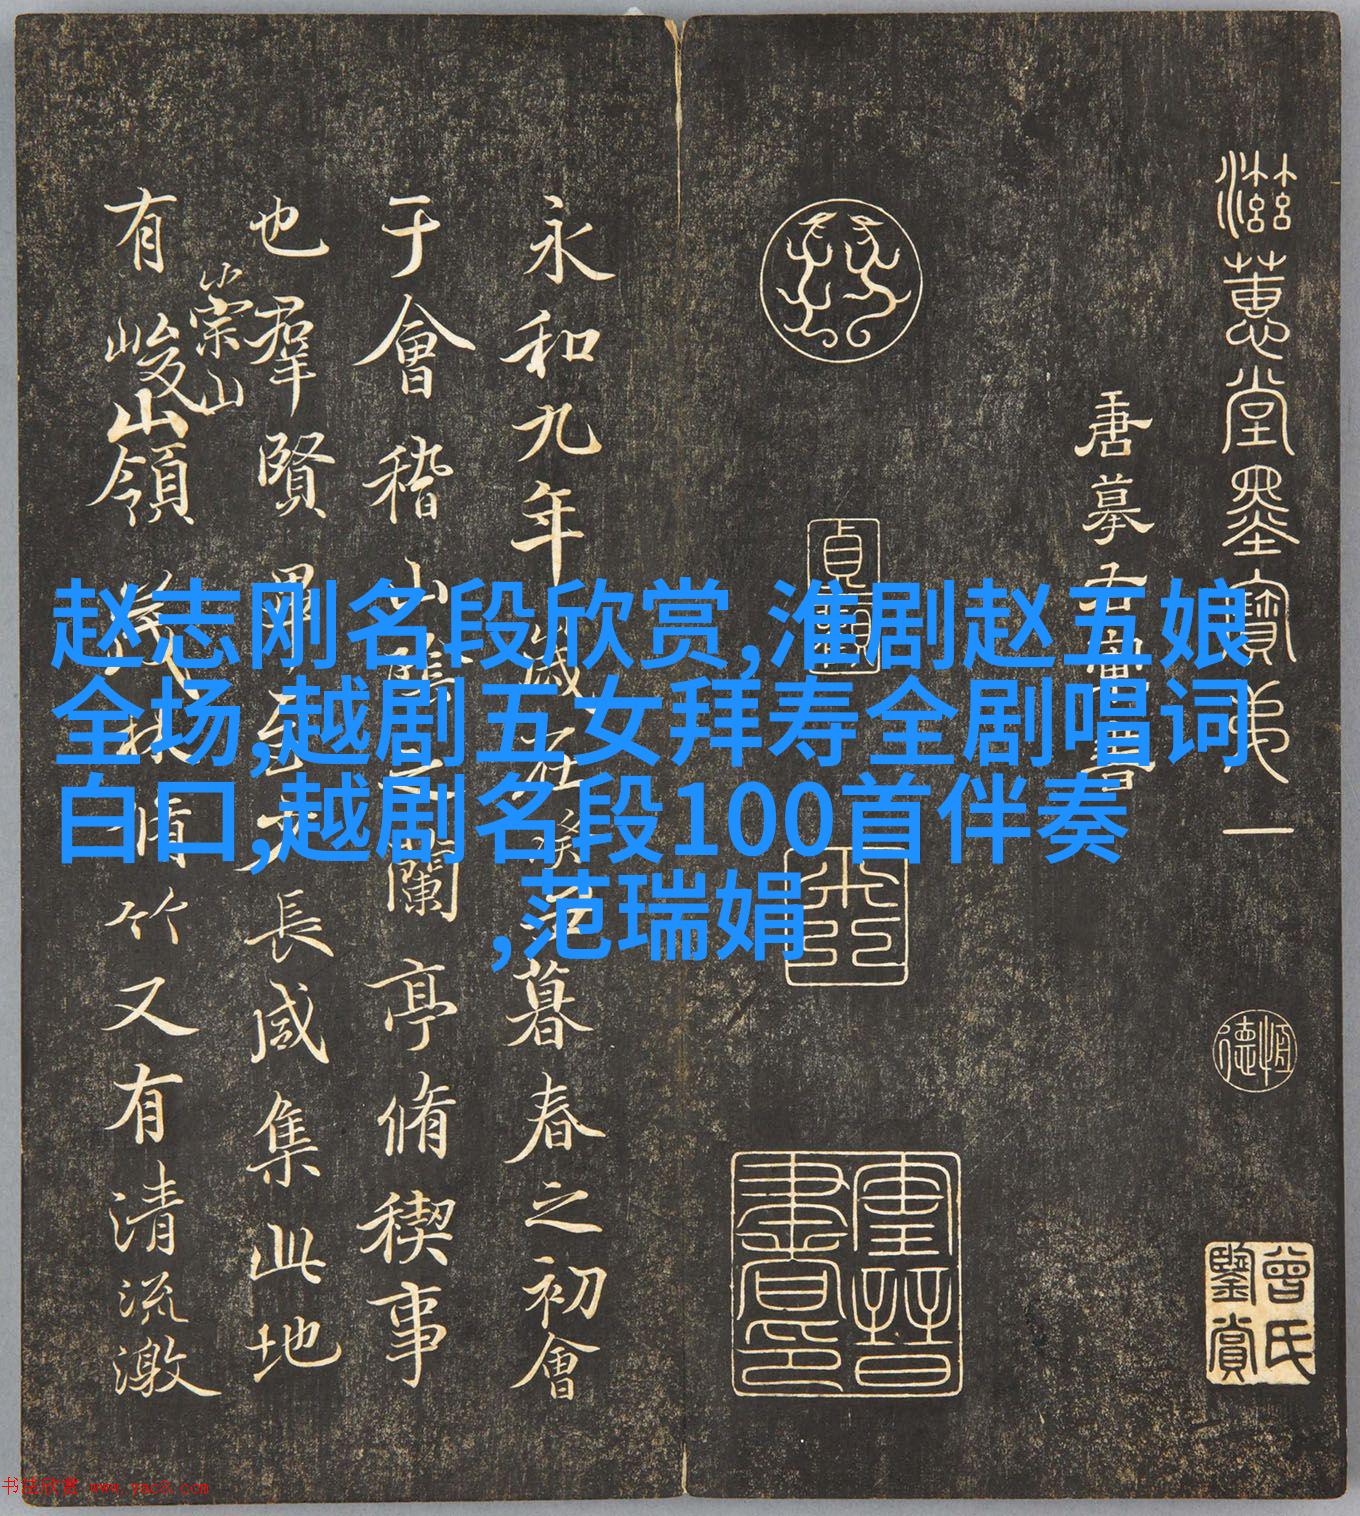 赵志刚名段欣赏,淮剧赵五娘
全场,越剧五女拜寿全剧唱词
白口,越剧名段100首伴奏
,范瑞娟
滋蕙堂墨寶弟一
曾氏鑒賞
永和九年歲在癸丑暮春之初會
于會稽山陰之蘭亭脩稧事
也羣賢畢至少長咸集此地
崇山
有峻嶺茂林脩竹又有清流激
书法欣赏 www.yac8.com